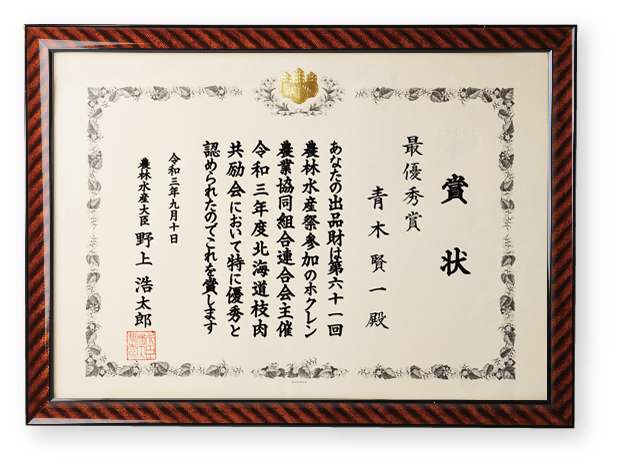 賞状
最優秀賞
青木賢一殿
あなたの出品財は第六十一回
農林水産祭参加のホクレン
農業協同組合連合会主催
令和三年度北海道枝肉
共励会において特に優秀と
認められたのでこれを賞します
令和三年九月十日
農林水産大臣 野上浩太郎